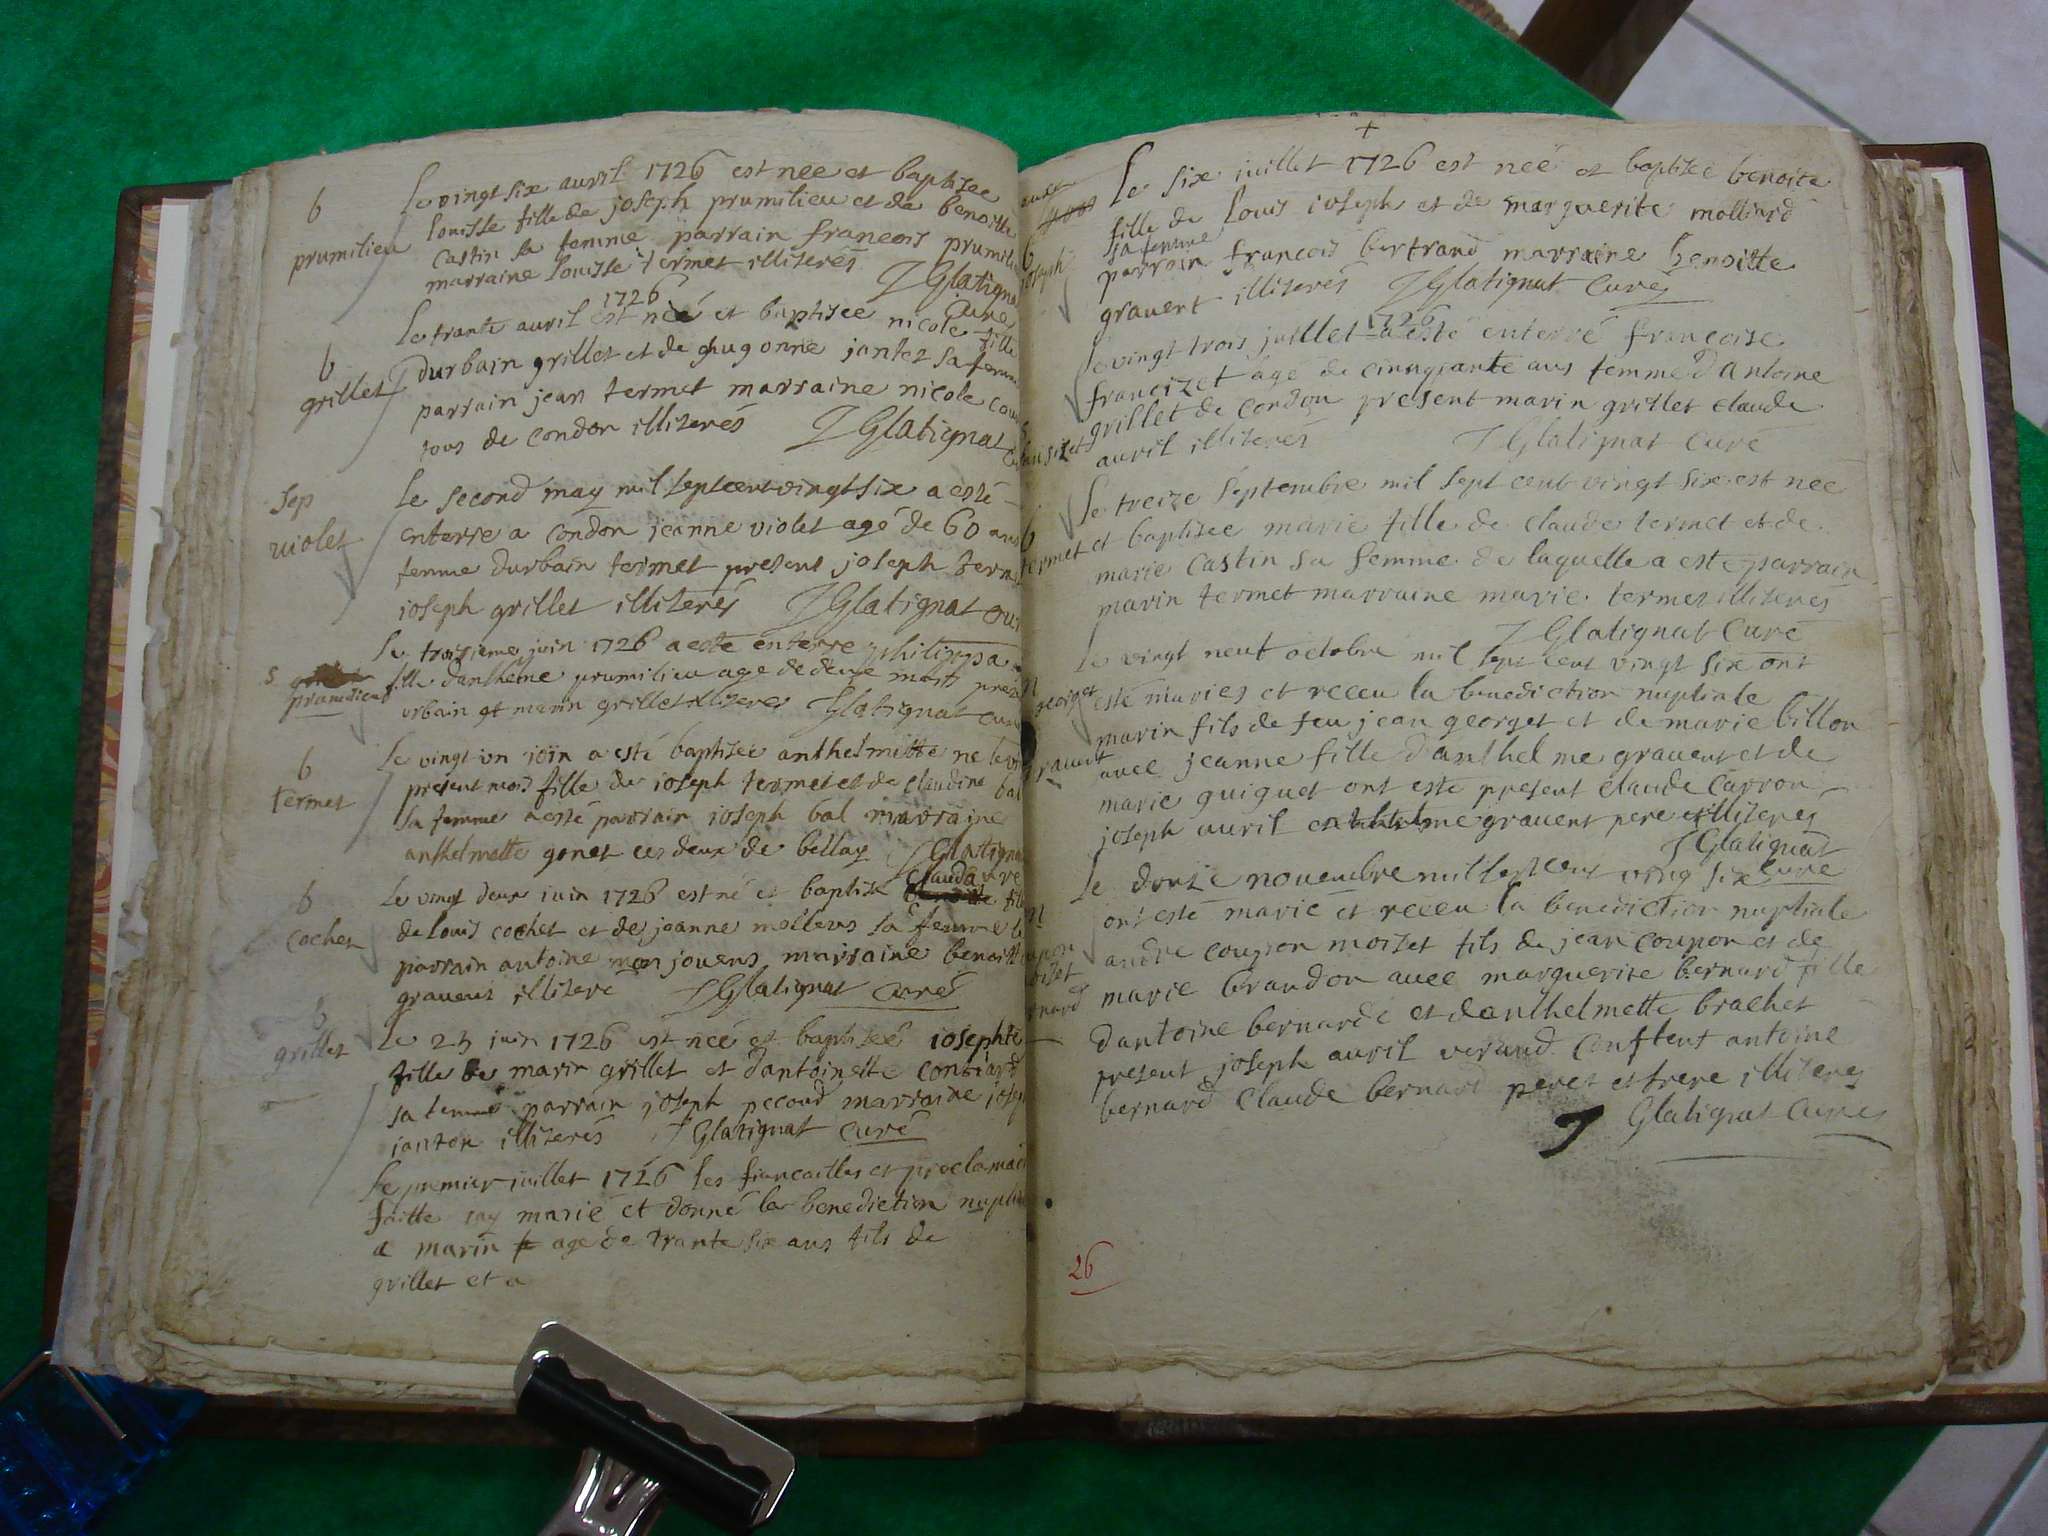 b
prumilieu
Le vingt six avril 1726 est nee et baptisee
louisse fille de joseph prumilieu et de benoitte
castin sa femme parrain francois prumilie
marraine louisse termet illiterés J Glatigna
curé
1726
Le trante avril est neé et baptisee nicole fille
b
grillet
durbain grillet et de hugonne jantet sa femme
parrain jean termet marraine nicole
tous de condon illiterés J Glatignat
sep
violet
Le second may mil sept cent vingt six a esté
enterre a condon jeanne violet agé de 60 ans
femme durbain termet present joseph terme
joseph grillet illiterés J Glatignat cur
s
prumilieu
Le troizieme juin 1726 a este enterre philippa
fille danthelme prumilieu age de deux mois prese
urbain et marin grillet illiteres J Glatignat curé
b
termet
Le vingt un join a esté baptisée anthelmitte ne le
present mois fille de joseph termet et de claudine bal
sa femme a esté parrain joseph bal marraine
anthelmette gonet ces deux de bellay J Glatigna
clauda
b
cochet
Le vingt deux juin 1726 est né et baptisé fille
de louis cochet et de jeanne mollens sa femme
parrain antoine monjouens marraine benoitt
gravens illiteré J Glatignat curé
b
grillet
Le 25 juin 1726 est neé et baptiseé iosephte
fille de marin grillet et dantoinette contiard
sa femme parrain joseph pecoud marraine iosep
janton illiterés J Glatignat curé
Le premier juillet 1726 les fiancailles et proclamaõ
faitte jay marié et donné la benediction nuptia
a marin age de trante six ans fils de
grillet et a
+
Le six juillet 1726 est neé et baptiseé benoite
fille de louis joseph et de marguerite molliard
sa femme
b
joseph
parrain francois bertrand marraine benoitte
gravent illiterés J Glatignat curé
1726
Le vingt trois juillet a esté enterré francoise
francizet agé de cinquante ans femme d'antoine
grillet de condon present marin grillet claude
avril illiterés J Glatignat curé
Le treize septembre mil sept cent vingt six est nee
b
termet
et baptisee marie fille de claude termet et de
marie castin sa femme de laquelle a este parrain
marin termet marraine marie termet illiterés
J Glatignat curé
Le vingt neuf octobre mil sept cent vingt six ont
georget
esté mariés et receu la benediction nuptiale
marin fils de feu jean georget et de marie billon
gravent
avec jeanne fille d'anthelme gravent et de
marie guiguet ont este present claude carron
joseph avril et anthelme gravent pere illiteres
J Glatignat
curé
Le douze novembre mil sept cent ving six
ont esté marié et receu la benediction nuptiale
andre coupon moizet fils de jean coupon et de
marie brandon avec marguerite bernard fille
dantoine bernard et danthelmette brachet
present joseph avril antoine
bernard claude bernard peres et frere illiteres
J Glatignat curé
26